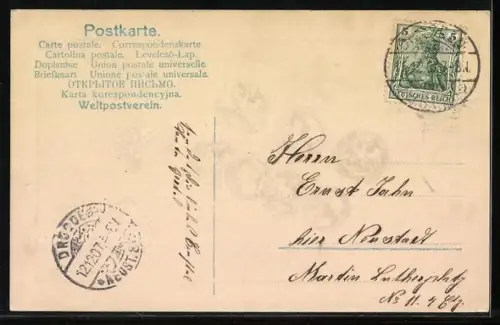 Postkarte.
Carte postale. Correspondenzkarte
Cartolina postale. Levelező-Lap.
Dopisnice Union postale universelle
Briefkaart Unione postale universale.
ОТКРЫТОЕ ПИСЬМО.
Karta korespondencyjna.
Weltpostverein.
5 5
DEUTSCHES REICH
DRESDEN
12.12.07
NEUST.
Herrn
Ernst Jahn
hier Neustadt
Martin Lutherplatz
No 11. 4 Etg.